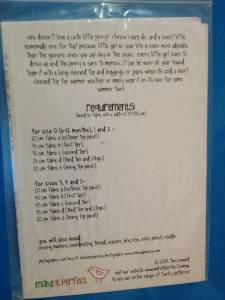 who doesn't love a cute little pinny! i know i sure do. and a sweet little
homemade one for that precious little girl in your life is even more adorable
than the generic ones you can buy in the shops. every little girl loves to
dress up and this pinny is sure to impress. it can be worn all year round.
team it with a long-sleeved top and leggings or jeans when it's cold, a short
sleeved top for warmer weather or simply wear it on its own for some
summer fun!
requirements
(based on fabric with a width of 112cm)
for size 0 (6-12 months), 1 and 2 -
10 cm fabric a
15 cm fabric b (first tier)
15 cm fabric c (second tier)
25 cm fabric d (third tier and straps)
10 cm fabric e (lining, top panel)
for sizes 3, 4 and 5-
10 cm fabric a
fabric b (first tier)
fabric c (second tier)
fabric d (third tier and straps)
10 cm fabric e (lining, top panel)
you will also need:
sewing machine, coordinating thread, scissors, pins, iron, ruler, pencil, needle
photography courtesy of
make it perfect
© 2008, Toni Coward
visit our website www.makeitperfect.com.au
to see our full range of